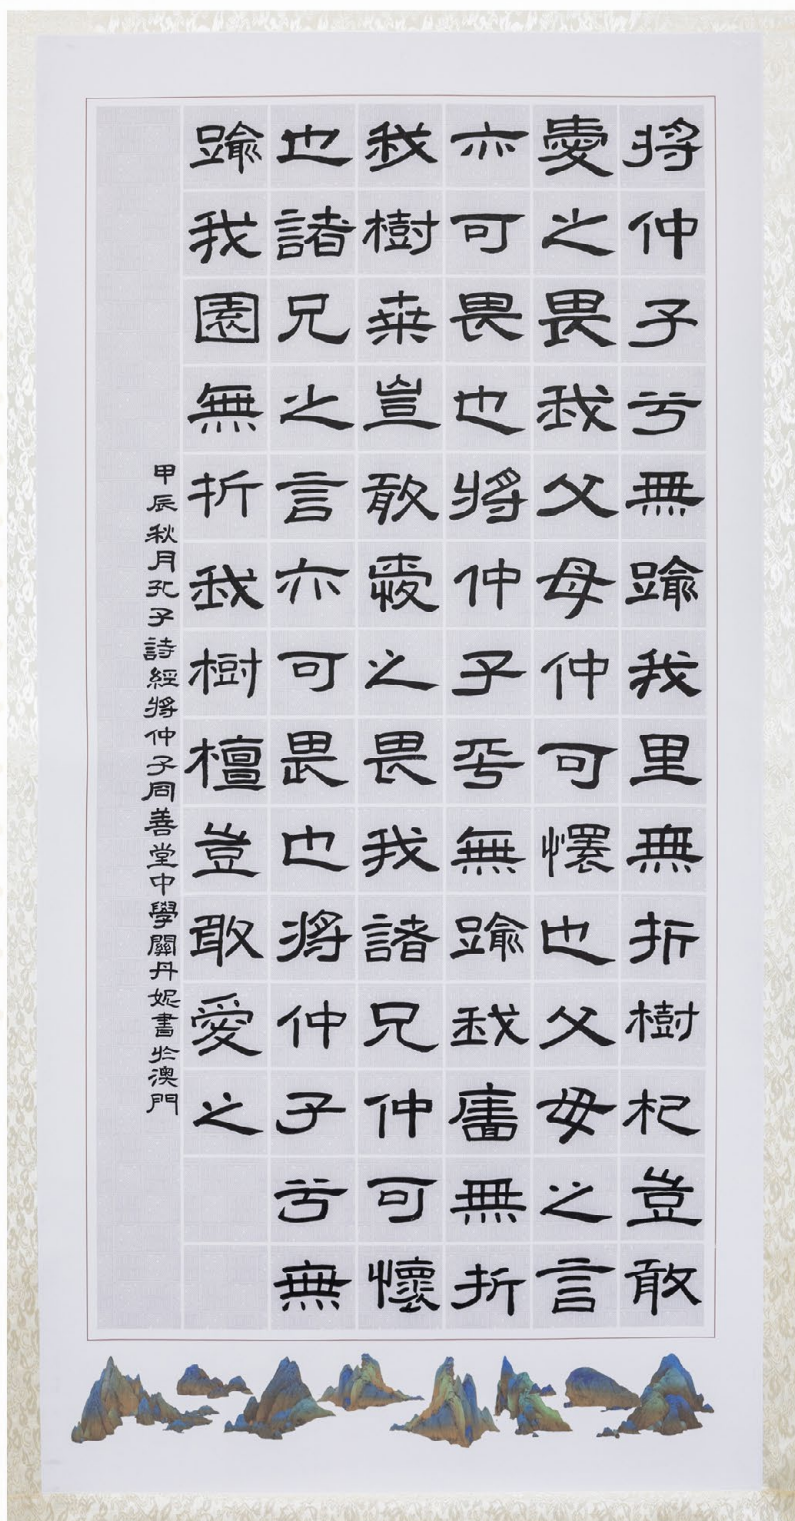 將仲子兮無踰我里無折樹杞豈敢
愛之畏我父母仲可懷也父母之言
亦可畏也將仲子乎無踰我牆無折
我樹桑豈敢愛之畏我諸兄仲可懷
也諸兄之言亦可畏也將仲子兮無
踰我園無折我樹檀豈敢愛之
甲辰秋月孔子詩經將仲子同善堂中學關丹妮書於澳門